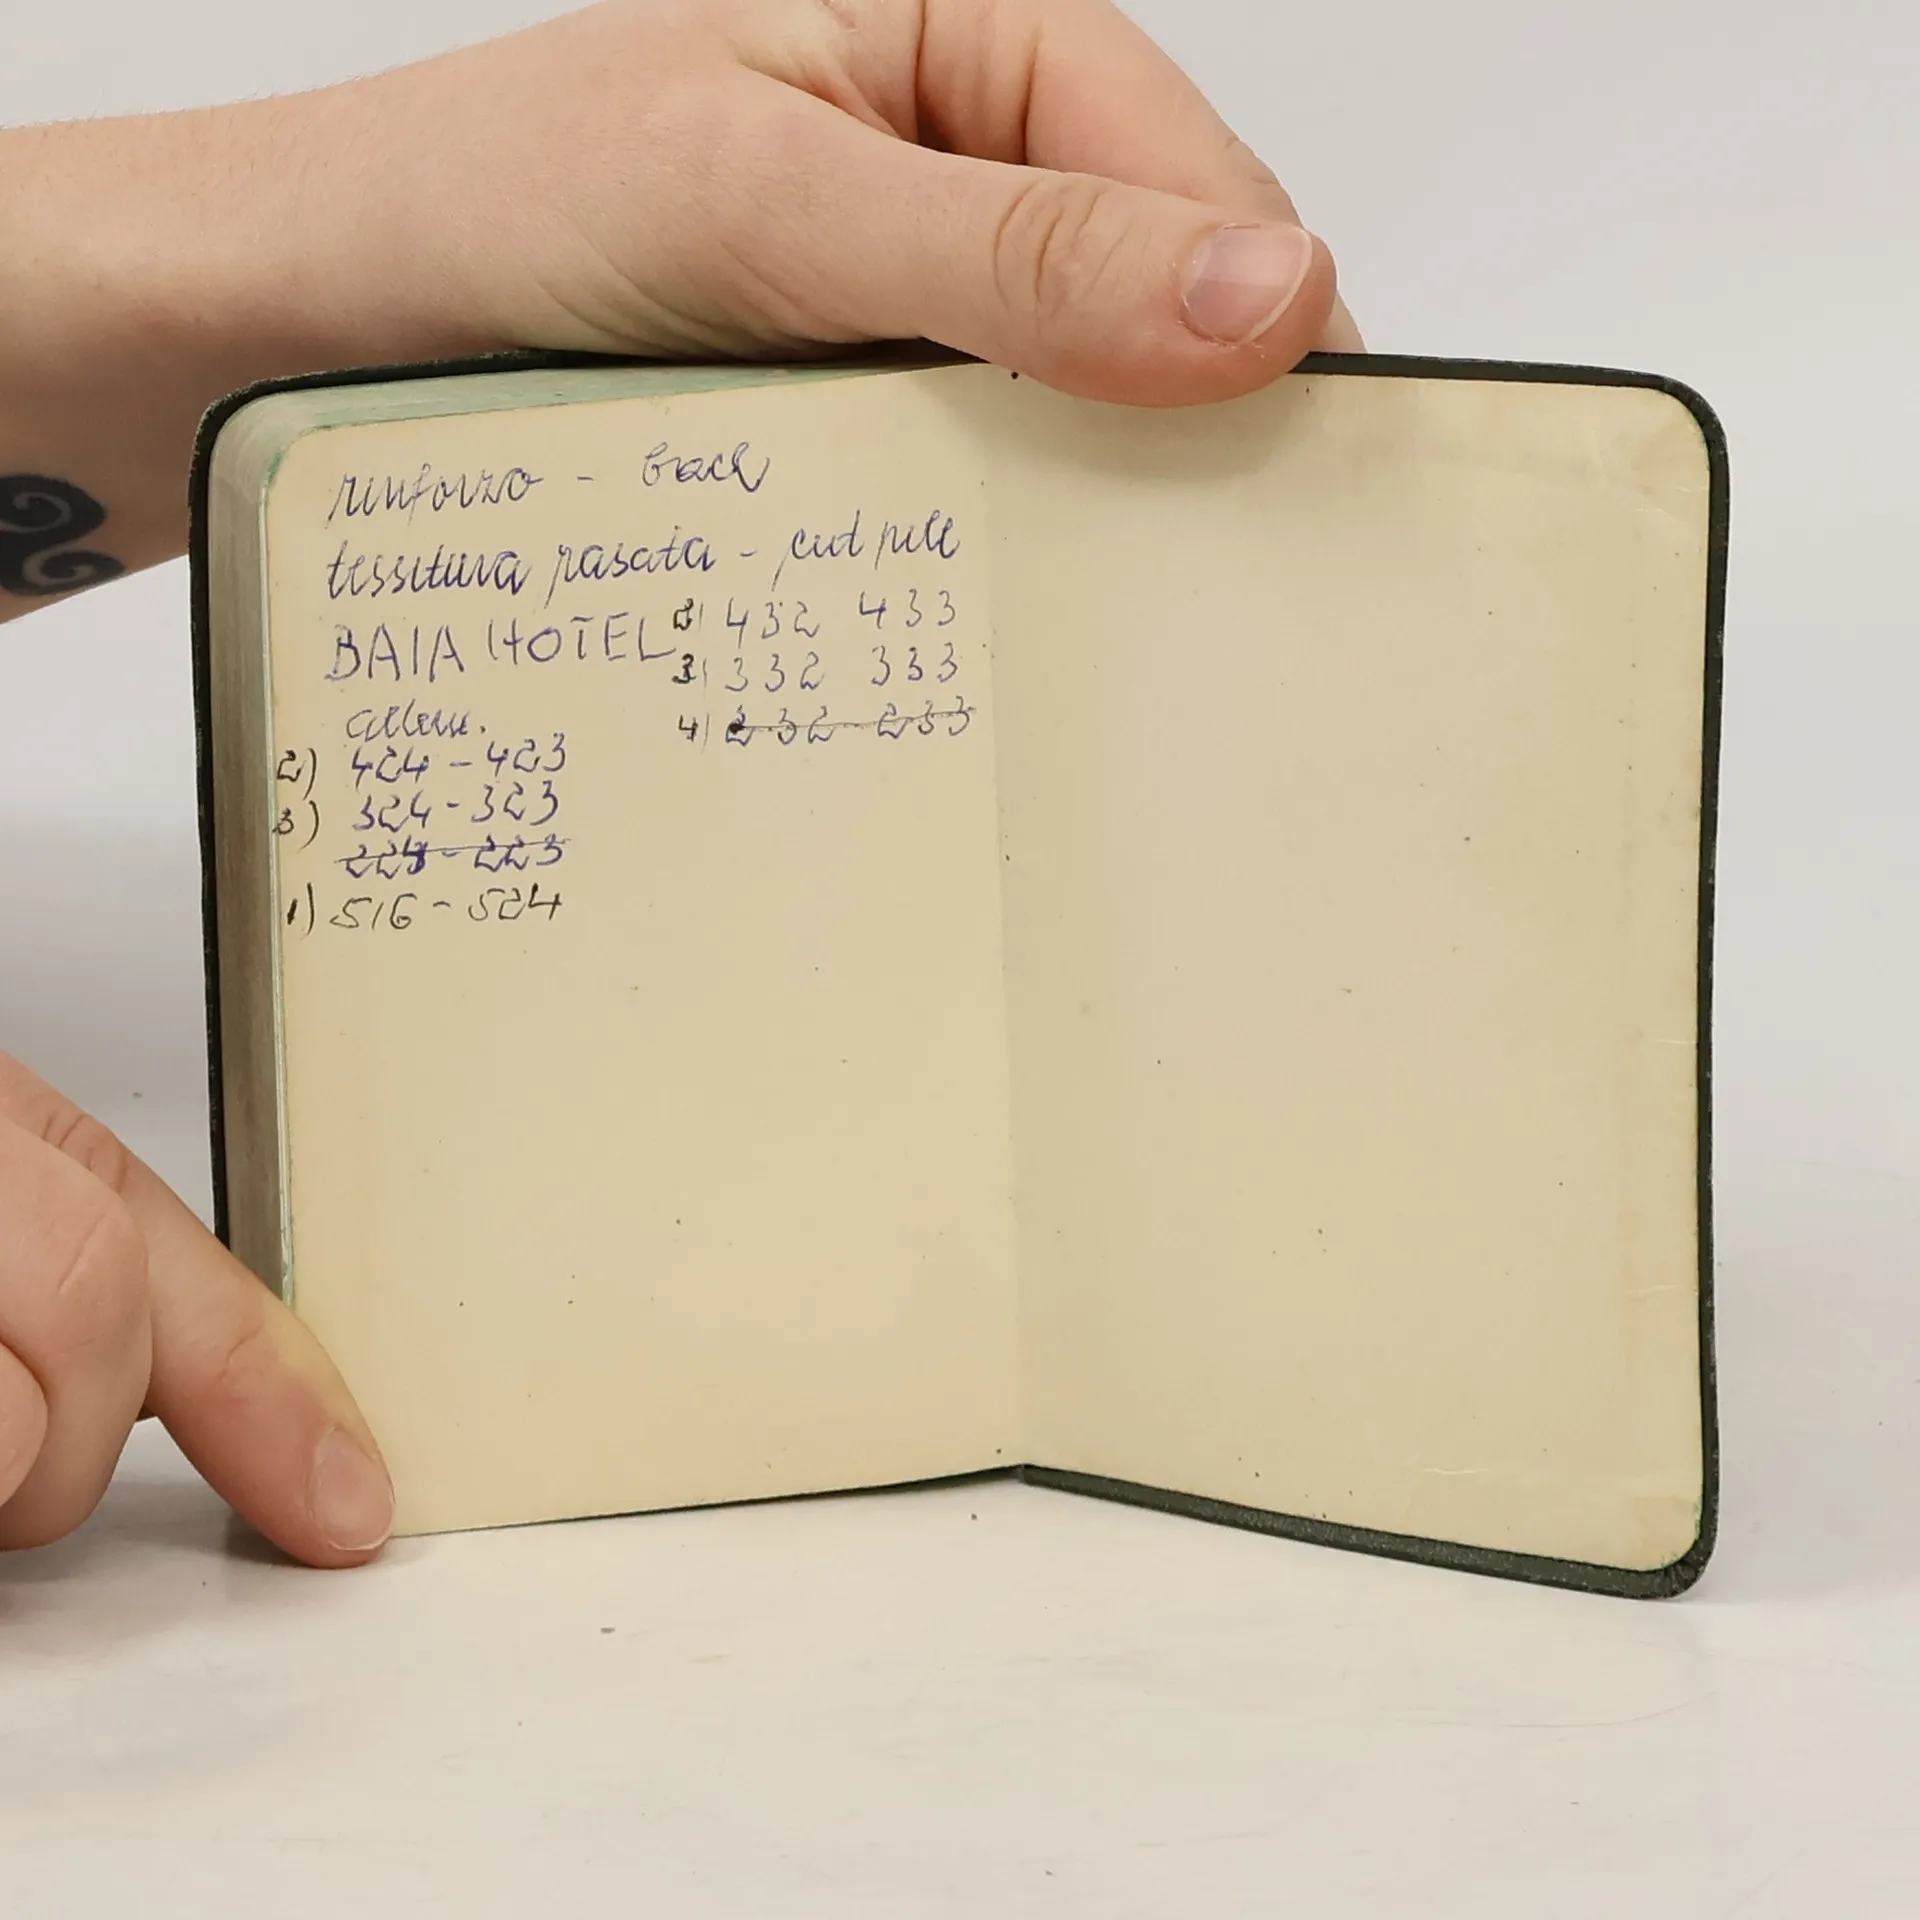 rinforzo - back
tessitura rasata - cut pile
BAIA HOTEL
2) 432 433
3) 332 333
4) 232 - 233
2) 424 - 423
3) 324 - 323
224 - 223
1) 516 - 524